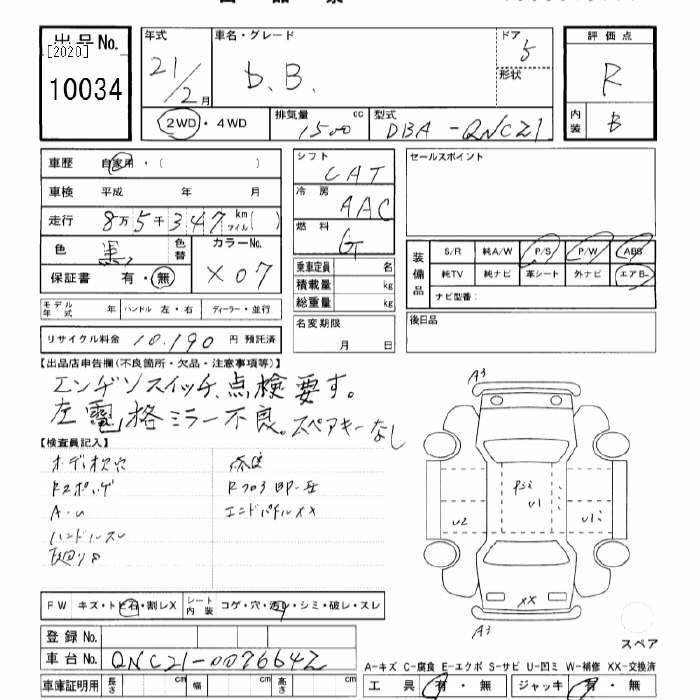 出品No.
[2020]
10034
年式 21/2月
車名・グレード b.B.
ドア 5
形状
評価点 R
内装 B
2WD・4WD
排気量 1500 cc
型式 DBA-QNCZ1
車歴 自家用・( )
車検 平成 年 月
走行 8万5千347 km マイル( )
色 黒
色替
カラーNo. X07
保証書 有・無
モデル年式 年 ハンドル 左・右 ディーラー・並行
リサイクル料金 10.190 円 預託済
シフト CAT
冷房 AAC
燃料 G
乗車定員 名
積載量 kg
総重量 kg
名変期限 月 日
セールスポイント
装備品
S/R 純A/W P/S P/W ABS
純TV 純ナビ 革シート 外ナビ エアB
ナビ型番:
後日品
【出品店申告欄(不良箇所・欠品・注意事項等)】
エンヂンスイッチ、点検要す。
左電格ミラー不良。スペアキーなし
【検査員記入】
ハンドルスレ
FW キズ・トビ石・割レX
シート内装 コゲ・穴・汚レ・シミ・破レ・スレ
登録No.
車台No. QNCZ1-0076642
車庫証明用 長さ cm 幅 cm 高さ cm
A3
U1
U2
U1
XX
A3
スペア
A-キズ C-腐食 E-エクボ S-サビ U-凹ミ W-補修 XX-交換済
工具 有・無 ジャッキ 有・無